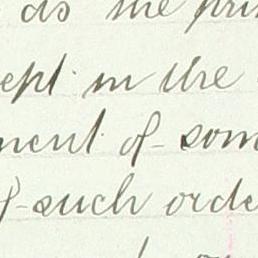 as the pri
ept in the
ment of som
f such orde